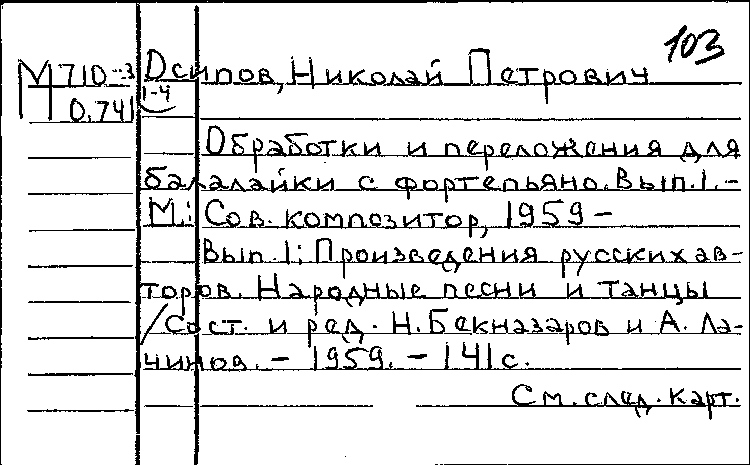 103
М710-3 Осипов, Николай Петрович
0.741 1-4
Обработки и переложения для
балалайки с фортепьяно. Вып.1.-
М.: Сов. композитор, 1959-
Вып.1: Произведения русских ав-
торов. Народные песни и танцы
/Сост. и ред. Н. Бекназаров и А. Ла-
чинов. - 1959. - 141 с.
См. след. карт.